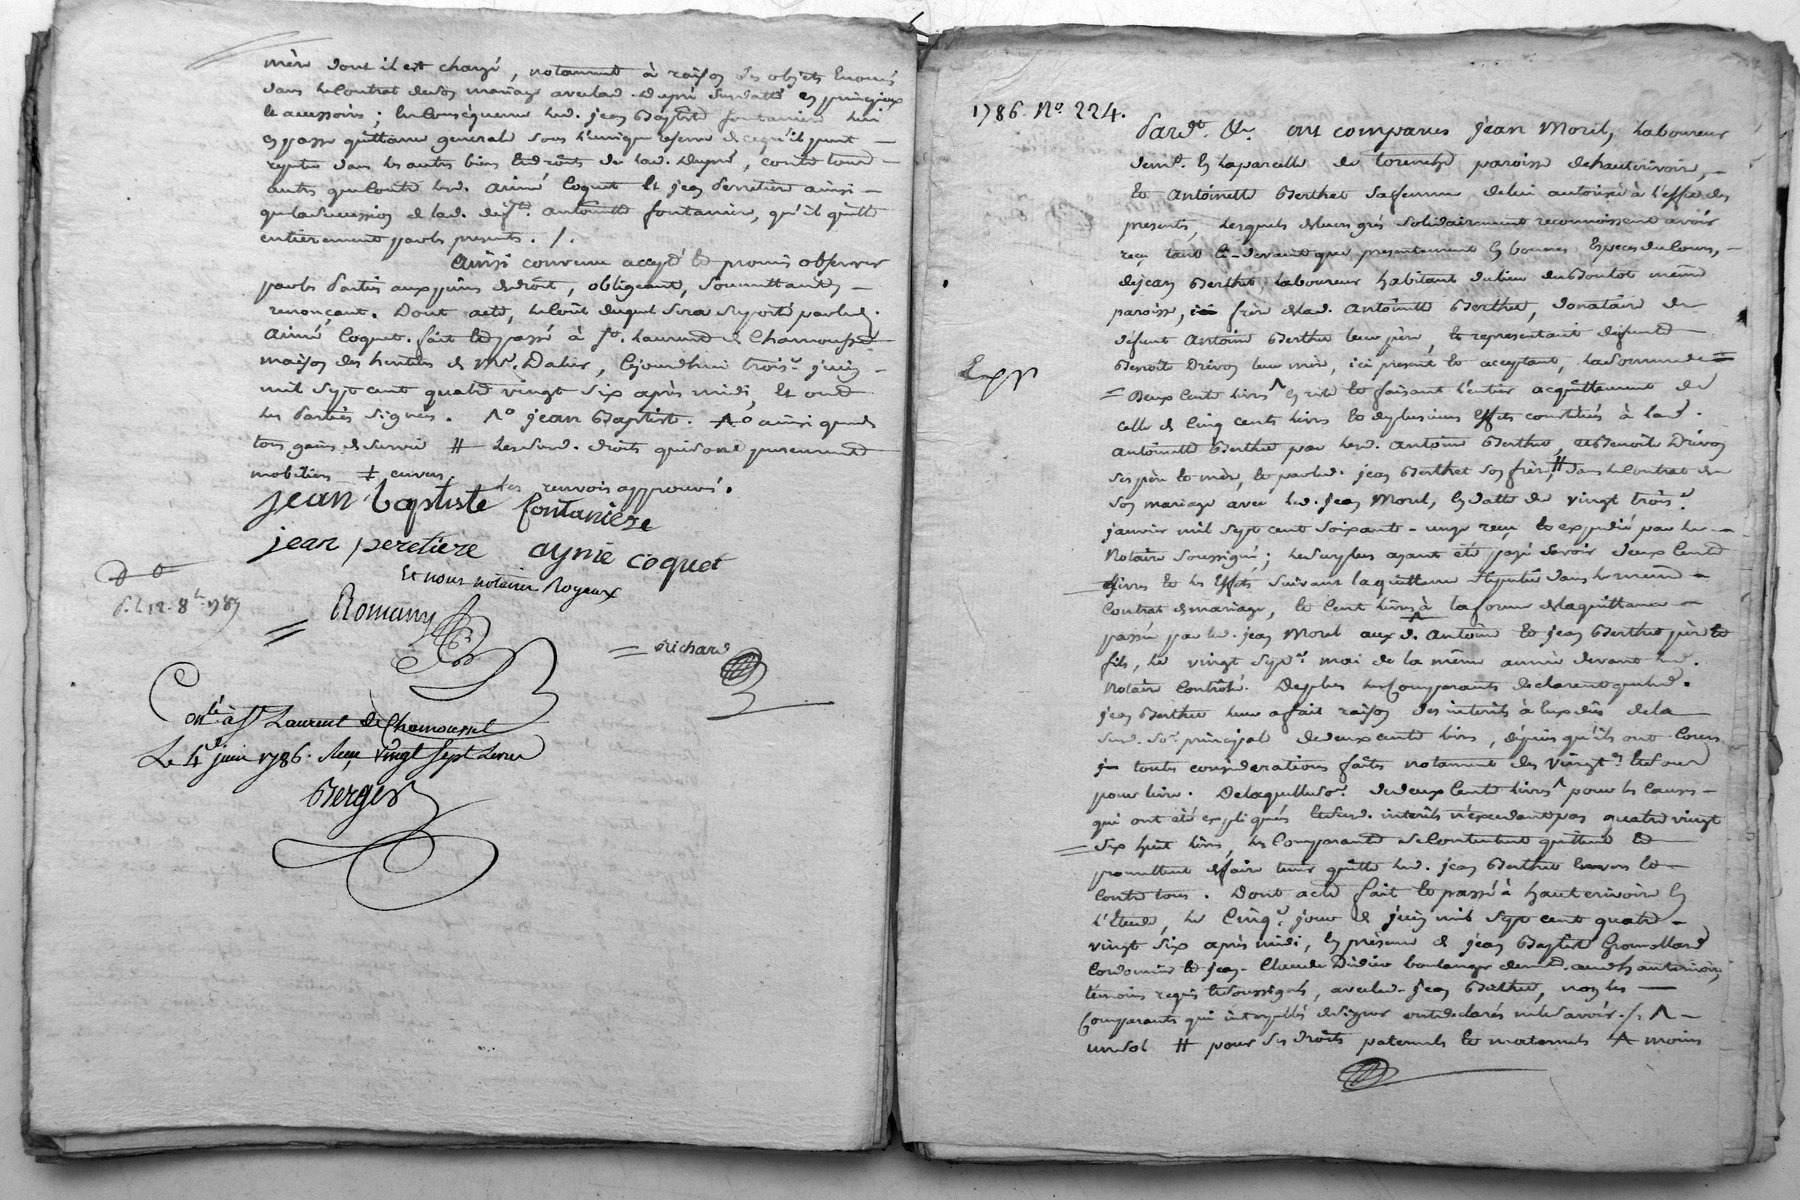 mère dont il est chargé, notamment à raison des objets énoncés
dans le contrat de son mariage avec lad. Dupré susdatté en principaux
et accessoires; en conséquence led. jean Baptiste fontaniere lui
en passe quittance generale sous l'unique reserve de ce qu'il peut
repeter dans les autres biens et droits de lad. Dupré, contre tous
autres que contre led. aimé Coquet et jean Perretiere ainsi
que la succession de lad. defte. antoinette fontaniere, qu'il quitte
entierement par les presents. /.
Ainsi convenu accepté et promis observer
par les Parties aux peines de droit, obligeant, soumettant,
renonçant. Dont acte, le coût duquel sera suporté par led.
aimé Coquet. fait et passé à St. Laurent de Chamousset
maison des heritiers de Mr. Dalier, cejourdhui trois juin
mil sept cent quatre vingt six après midi, et ont
les Parties signés. jean Baptiste. ainsi que de
tous gains de survie # lesd. droits qui sont purement
mobiliers ‡ envers
les renvois approuvés.
jean baptiste fontaniere
jean peretiere aymé coquet
Et nous notaires Royaux
Romany
Richard
d. l. 12. 8bre 1789
Contlé à St Laurent de Chamousset
Le 4 juin 1786. Reçu vingt sept livres
Berger
1786. No. 224.
Pardt. &c. ont comparus jean Moril, laboureur
demt. en la parcelle de torenche paroisse de hauterivoire,
et Antoinette Berthet sa femme de lui autorisée à l'effet des
presents, lesquels de leurs grés solidairement reconnoissent avoir
reçu tant ci-devant que presentement en bonnes Especes du Cours,
de jean Berthet, laboureur habitant du lieu du Boulot même
paroisse, frère de lad. Antoinette Berthet, donataire de
défunt Antoine Berthet leur père, et representant defunte
Benoite Drivon leur mère, ici present et acceptant, la somme de
Deux cents livres en reste et faisant l'entier acquittement de
celle de Cinq cents livres et de plusieurs effets constitués à lad.
antoinette Berthet par led. Antoine Berthet, et Benoite Drivon
ses père et mère, et par led. jean Berthet son frère, # dans le Contrat de
son mariage avec led. jean Moril, en datte du vingt trois
janvier mil sept cent soixante-unze reçu et expedié par le
Notaire soussigné; le surplus ayant été payé savoir deux Cents
livres et les Effets suivant la quittance stipulée dans le meme
Contrat de mariage, et Cent livres à la forme de la quittance
passée par led. jean Moril aux d. Antoine et jean Berthet père et
fils, le vingt sept mai de la même année devant led.
Notaire Contrôlé. De plus les Comparants declarent que led.
jean Berthet leur a fait raison des interêts à eux dûs de la
susd. so. principale de deux cents livres, depuis qu'ils ont Cours
toutes considerations faites notament des vingt. et sou
pour livre. De laquelle so. de deux Cents livres pour les causes
qui ont été expliquées et lesd. interêts n'excedant pas quatre vingt
dix huit livres, les Comparants se contentent quittent et
promettent de faire tenir quitte led. jean Berthet Envers et
Contre tous. Dont acte fait et passé à hauterivoire en
l'Etude, le Cinq jour de juin mil sept cent quatre
vingt six après midi, en présence de jean Baptiste Gromollard
Cordonnier et jean-Claude Didier boulanger demt. aud. hauterivoire,
témoins requis et soussignés, avec led. jean Berthet, non les
Comparants qui interpellés de signer ont declarés ne le savoir. /.
un sol # pour ses droits paternels et maternels moins